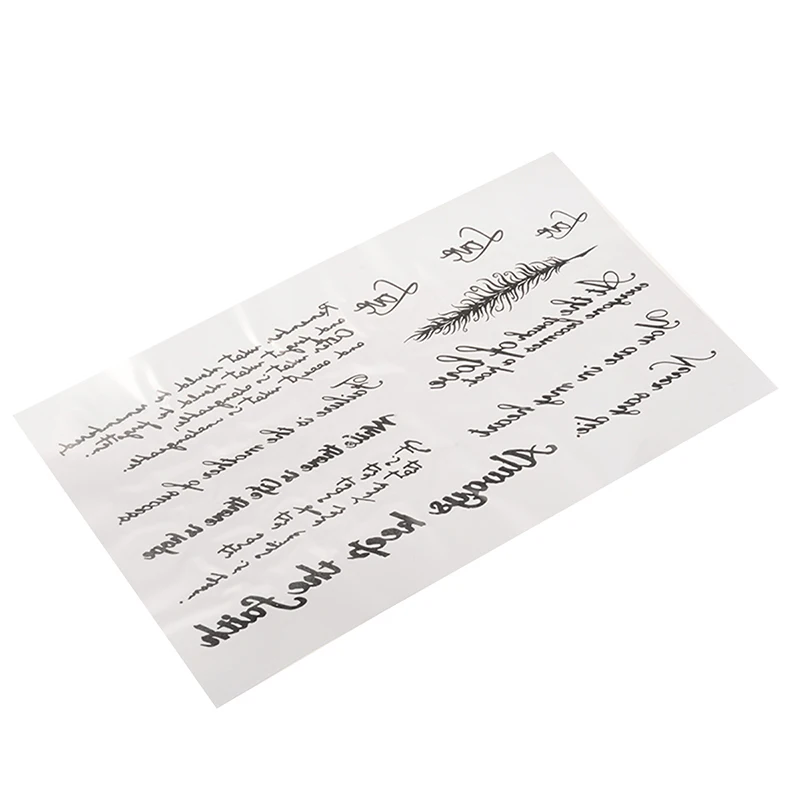 Love
Love
Love
At the touch of love
everyone becomes a poet
You are in my heart
Never say die.
Remember what should be remembered,
and forget what should be forgotten.
Alter what is changeable,
and accept what is unchangeable.
Failure is the mother of success
While there is life there is hope
It is the tears of the earth
that keep here smiles in bloom.
Always keep the faith